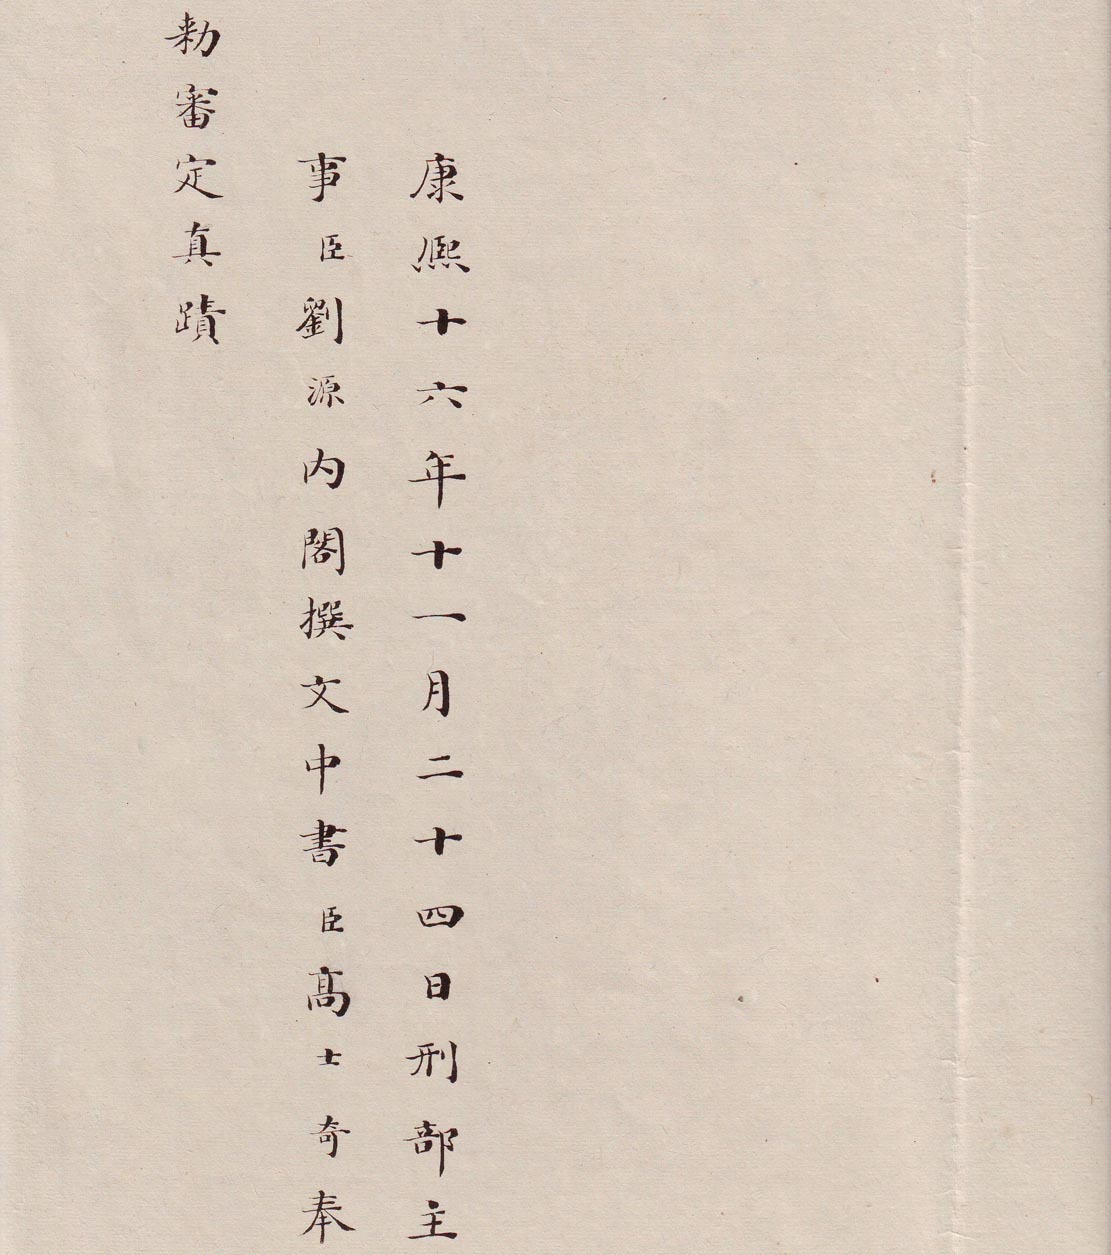 康熈十六年十一月二十四日刑部主
事臣劉源内閣撰文中書臣高士奇奉
勅審定真蹟